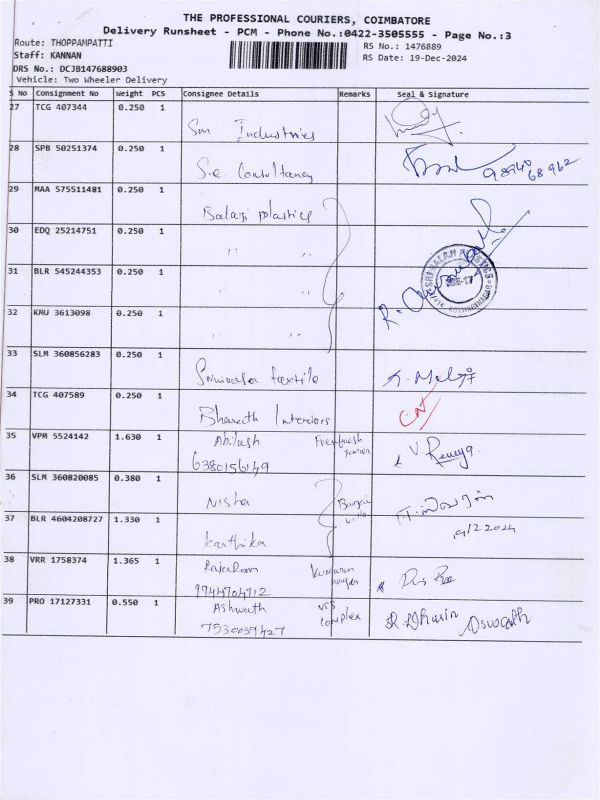 THE PROFESSIONAL COURIERS, COIMBATORE
Delivery Runsheet - PCM - Phone No.:0422-3505555 - Page No.:3
Route: THOPPAMPATTI
RS No.: 1476889
Staff: KANNAN
RS Date: 19-Dec-2024
DRS No.: DCJB147688903
Vehicle: Two Wheeler Delivery
S No Consignment No Weight PCS Consignee Details Remarks Seal & Signature
27 TCG 407344 0.250 1
Sun Industries
28 SPB 50251374 0.250 1
S.e. Consultancy 98940 68962
29 MAA 575511481 0.250 1
Balaji plastics
30 EDQ 25214751 0.250 1
" "
31 BLR 545244353 0.250 1
" "
32 KMU 3613098 0.250 1
" "
33 SLM 360856283 0.250 1
Srinivasa textile
34 TCG 407589 0.250 1
Bharath Interiors
35 VPM 5524142 1.630 1
Abilash
V. Remya
6380156149
36 SLM 360820085 0.380 1
Nisha
37 BLR 4604208727 1.330 1
Karthika
38 VRR 1758374 1.365 1
Rajaram
9944704912
39 PRO 17127331 0.550 1
Ashwath VSS complex
7530039427